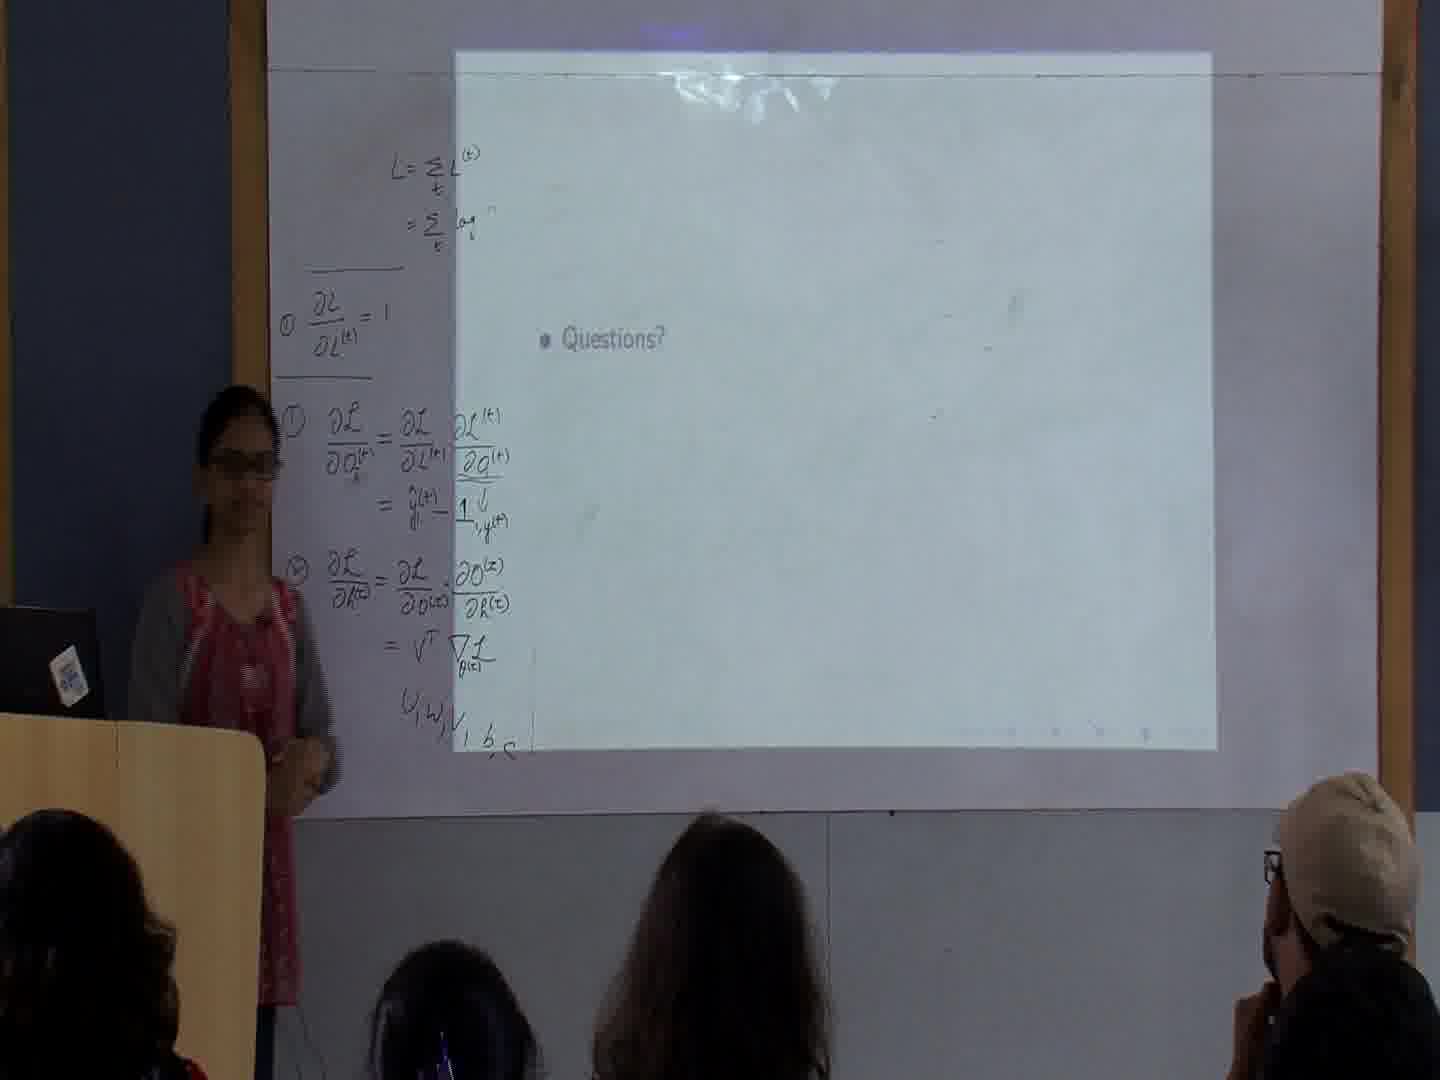 L = Σ_t L^(t)
= Σ_t log
① ∂L/∂L^(t) = 1
① ∂L/∂O_i^(t) = ∂L/∂L^(t) · ∂L^(t)/∂O^(t)
= ŷ_i^(t) − 1_{i,y^(t)}
② ∂L/∂h^(τ) = ∂L/∂O^(τ) · ∂O^(τ)/∂h^(τ)
= V^T ∇_{O^(τ)} L
U, W, V, b, c
• Questions?